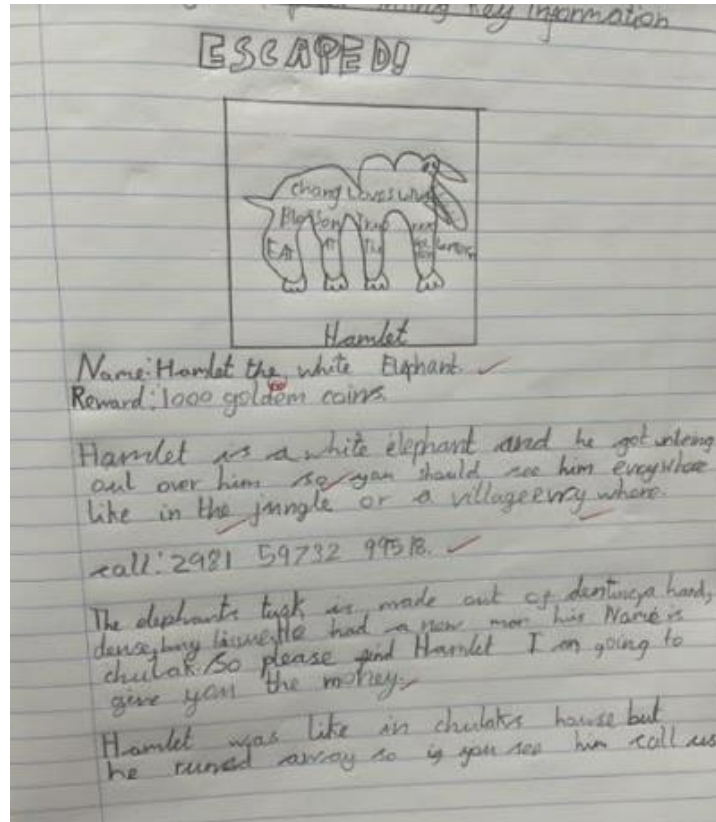 key information
ESCAPED!
Chang Loves
Blossom
EAT
Hamlet
Name: Hamlet the white Elephant
Reward: 1000 goldem coins.
Hamlet is a white elephant and he got writing
out over him so you should see him everywhere
like in the jungle or a village evry where.
call: 2981 59732 99518.
The elephants tusk is made out of a hard,
dense, bony He had a new his Name is
chulak. So please find Hamlet I am going to
give you the money.
Hamlet was like in chulaks house but
he runed away so if you see him call us